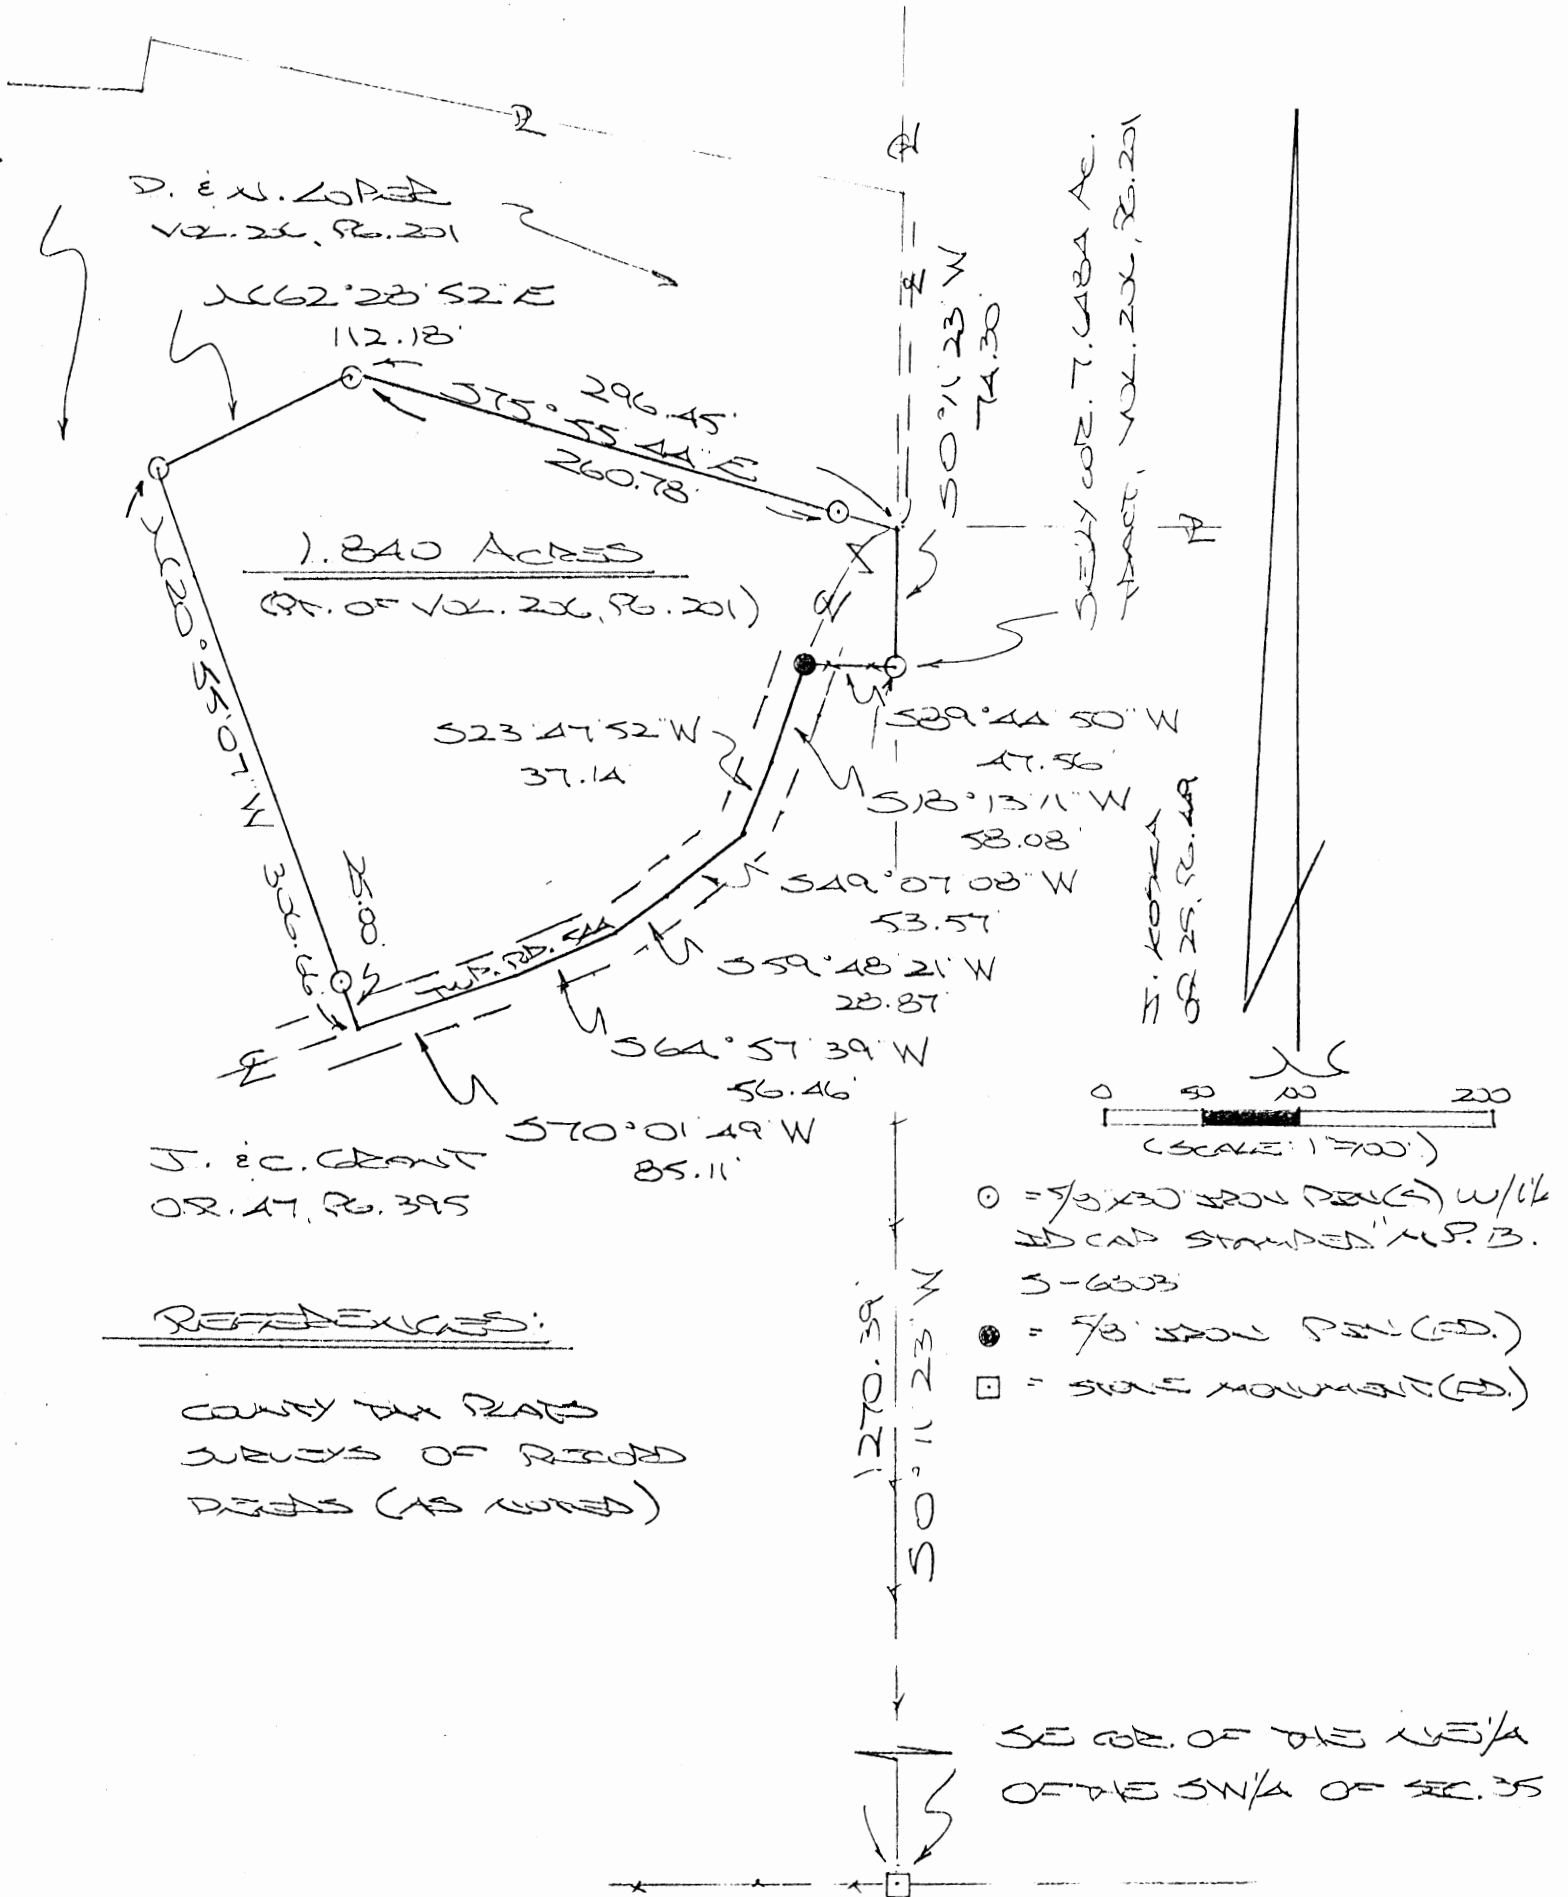 D. & N. LOPER
VOL. 206, PG. 201
N 62° 28' 52" E
112.18'
296.45'
S 75° 55' 44" E
260.78'
S 0° 11' 23" W
74.30
SE'LY COR. 7.6484 AC.
TRACT, VOL. 206, PG. 201
1.840 ACRES
(PT. OF VOL. 206, PG. 201)
N 20° 55' 07" W 306.
25.00'
S 23° 47' 52" W
37.14'
S 89° 44' 50" W
47.56'
S 18° 13' 11" W
58.08'
S 49° 07' 08" W
53.57'
S 59° 48' 21" W
28.87'
S 64° 57' 39" W
56.46'
S 70° 01' 49" W
85.11'
TWP. RD. 544
OR 25, PG. 449
J. & C. GRANT
O.R. 47, PG. 395
N
0 50 100 200
(SCALE: 1"=100')
= 5/8" X 30" IRON PIN(S) W/ 1 1/4
ID CAP STAMPED "M.P.B.
S-6803
= 5/8" IRON PIN (FD.)
= STONE MONUMENT (FD.)
REFERENCES:
COUNTY TAX PLATS
SURVEYS OF RECORD
DEEDS (AS NOTED)
1270.39'
S 0° 11' 23" W
SE COR. OF THE NE 1/4
OF THE SW 1/4 OF SEC. 35